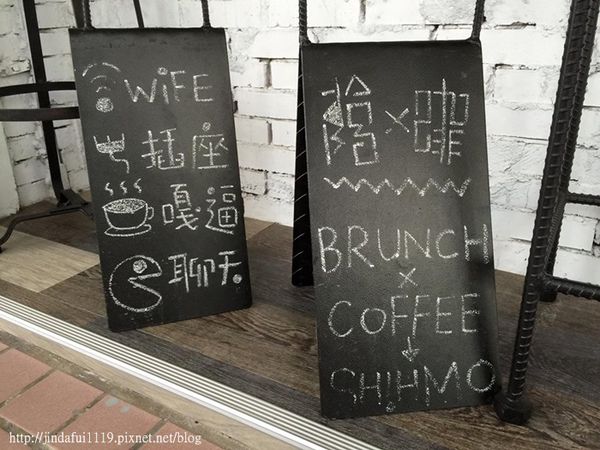 WiFE
插座
嘎逼
聊天
×啡
BRUNCH
×
COFFEE
CHIHMO
http://jindafui1119.pixnet.net/blog